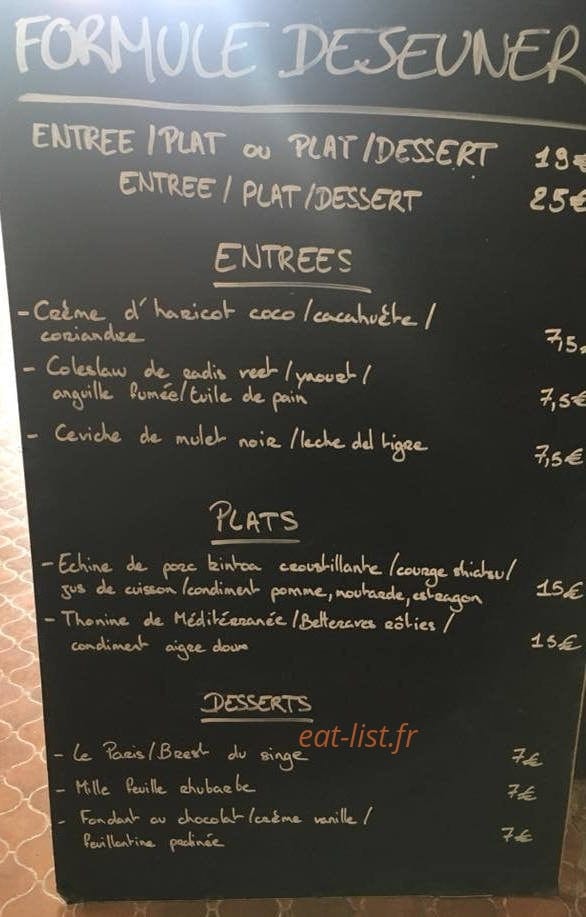 FORMULE DESEUNER
ENTREE / PLAT ou PLAT / DESSERT 19€
ENTREE / PLAT / DESSERT 25€
ENTREES
- Crème d'haricot coco / cacahuète /
coriandre 7,5
- Coleslaw de radis vert / yaourt /
anguille fumée / tuile de pain 7,5€
- Ceviche de mulet noir / leche del tigre 7,5€
PLATS
- Echine de porc kintoa croustillante / courge shiatsu /
jus de cuisson / condiment pomme, moutarde, estragon 15€
- Thonine de Méditérranée / Betteraves rôties /
condiment aigre doux 15€
DESSERTS
eat-list.fr
- Le Paris / Brest du singe 7€
- Mille feuille rhubarbe 7€
- Fondant au chocolat / crème vanille /
feuillantine pralinée 7€